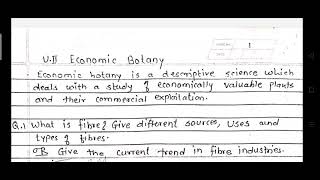 1
U.II Economic Botany
Economic botany is a descriptive science which
deals with a study of economically valuable plants
and their commercial exploitation.
Q.1 What is fibre? Give different sources, uses and
types of fibres.
OR Give the current trend in fibre industries.